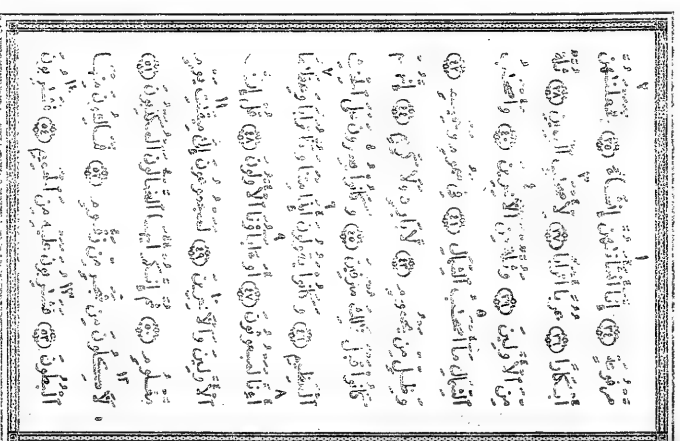 مَرْفُوعَةٍ ﴿٣٤﴾ إِنَّا أَنشَأْنَٰهُنَّ إِنشَآءً ﴿٣٥﴾ فَجَعَلْنَٰهُنَّ
أَبْكَارًا ﴿٣٦﴾ عُرُبًا أَتْرَابًا ﴿٣٧﴾ لِّأَصْحَٰبِ الْيَمِينِ ﴿٣٨﴾ ثُلَّةٌ
مِّنَ الْأَوَّلِينَ ﴿٣٩﴾ وَثُلَّةٌ مِّنَ الْآخِرِينَ ﴿٤٠﴾ وَأَصْحَٰبُ
الشِّمَالِ مَا أَصْحَٰبُ الشِّمَالِ ﴿٤١﴾ فِي سَمُومٍ وَحَمِيمٍ ﴿٤٢﴾
وَظِلٍّ مِّن يَحْمُومٍ ﴿٤٣﴾ لَّا بَارِدٍ وَلَا كَرِيمٍ ﴿٤٤﴾ إِنَّهُمْ
كَانُوا قَبْلَ ذَٰلِكَ مُتْرَفِينَ ﴿٤٥﴾ وَكَانُوا يُصِرُّونَ عَلَى الْحِنثِ
الْعَظِيمِ ﴿٤٦﴾ وَكَانُوا يَقُولُونَ أَئِذَا مِتْنَا وَكُنَّا تُرَابًا وَعِظَٰمًا
أَءِنَّا لَمَبْعُوثُونَ ﴿٤٧﴾ أَوَ ءَابَآؤُنَا الْأَوَّلُونَ ﴿٤٨﴾ قُلْ إِنَّ
الْأَوَّلِينَ وَالْآخِرِينَ ﴿٤٩﴾ لَمَجْمُوعُونَ إِلَىٰ مِيقَٰتِ يَوْمٍ
مَّعْلُومٍ ﴿٥٠﴾ ثُمَّ إِنَّكُمْ أَيُّهَا الضَّآلُّونَ الْمُكَذِّبُونَ ﴿٥١﴾
لَآكِلُونَ مِن شَجَرٍ مِّن زَقُّومٍ ﴿٥٢﴾ فَمَالِئُونَ مِنْهَا
الْبُطُونَ ﴿٥٣﴾ فَشَٰرِبُونَ عَلَيْهِ مِنَ الْحَمِيمِ ﴿٥٤﴾ فَشَٰرِبُونَ